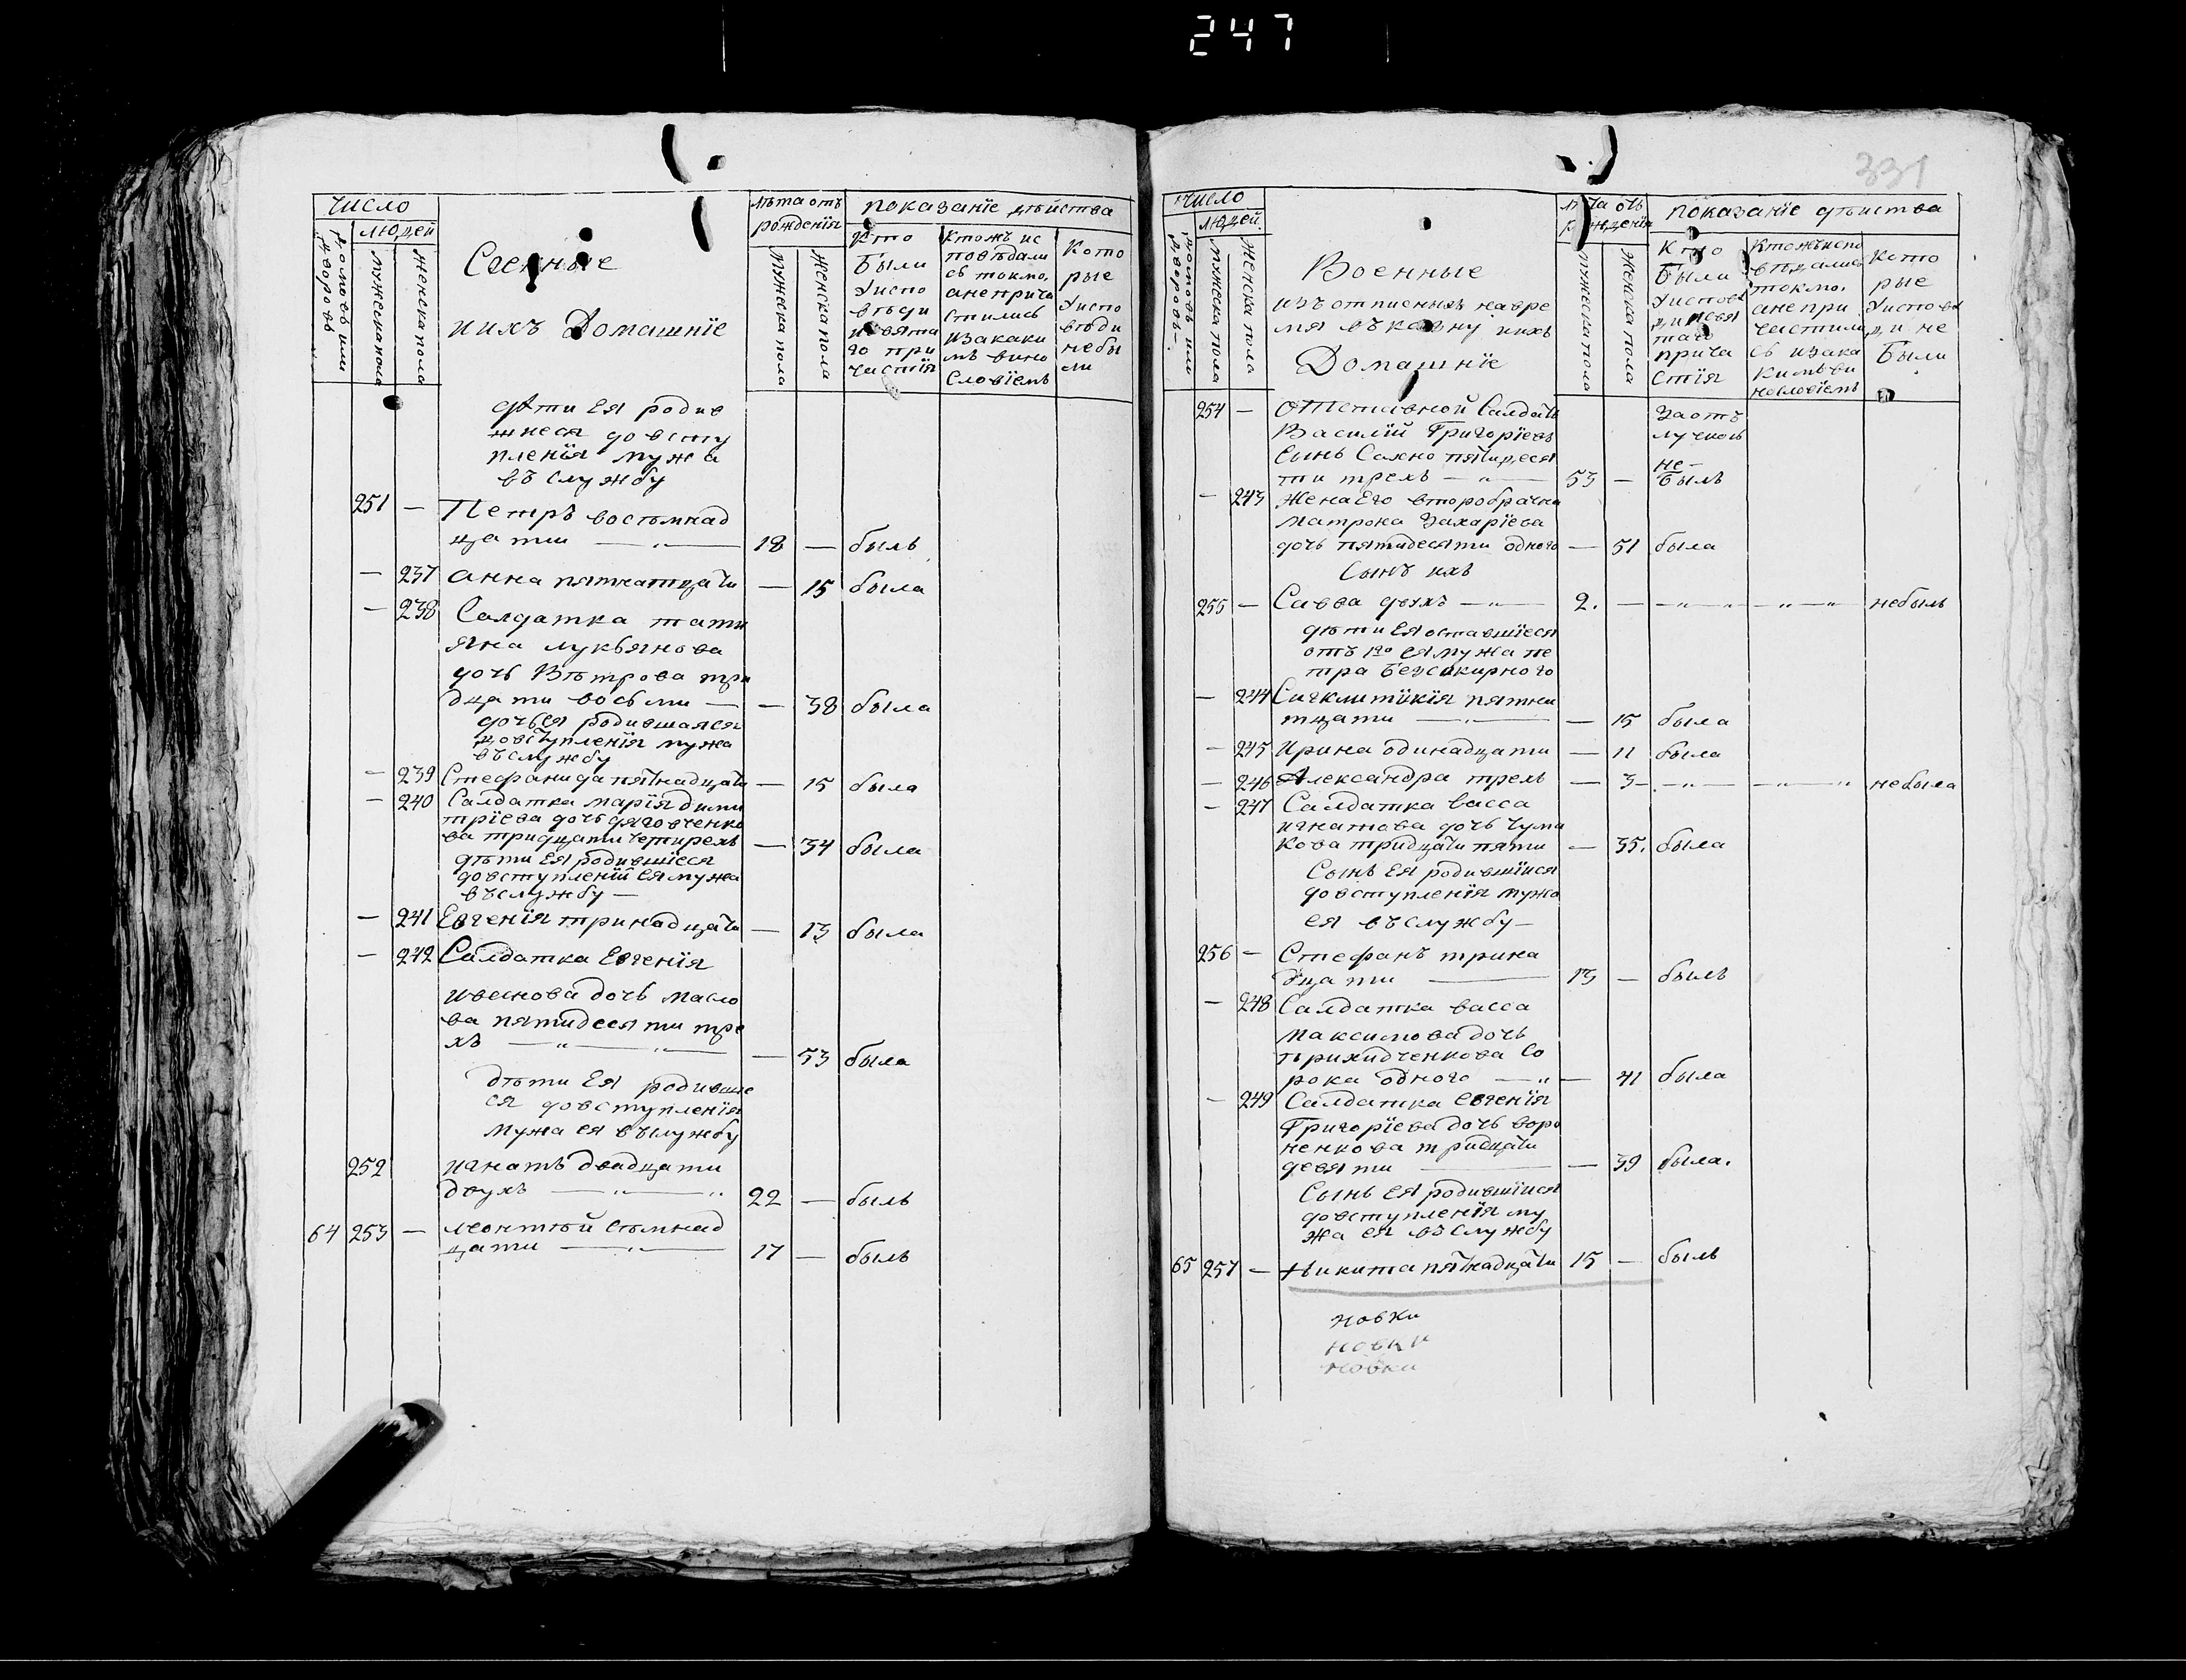 247
число
людей
домовъ или дворовъ
мужеска пола
женска пола
ихъ Домашнїе
лѣта отъ
рожденїя
мужеска пола
женска пола
показанїе дѣйства
Кто
Были
Уиспо
вѣди
исвята
го при
частїя
Ктожъ ис
повѣдали
сь токмо,
анеприча
стились
изакаки
мъ вино
словїемъ
Кото
рые
Уиспо
вѣди
небы
ли
дѣти Ея родив
шиеся довсту
пленїя мужа
въ службу
251 — Петръ восѣмнад
цати — „ — 18 — быль
— 237 анна пятнатцати — 15 была
— 238 Салдатка тати
яна лукьянова
дочь Вѣтрова три
дцати восьми — — 38 была
дочь Ея родившаяся
довступленїя мужа
въслужбу
— 239 Стефанида пятнадцати — 15 была
— 240 Салдатка марїя дими
трїева дочь дяговченко
ва тридцати четирехъ — 34 была
дѣти Ея родившїеся
довступленїй ея мужа
въслужбу —
— 241 Евгенїя тринадцати — 13 была
— 242 Салдатка Евгенїя
дочь масло
ва пятидесяти тре
хъ — „ — „ — — 53 была
дѣти Ея родившие
ся довступленїя
мужа ея въслужбу
252 игнатъ двадцати
двухъ — „ — „ 22 — быль
64 253 — леонтѣй сѣмнад
цати — „ — 17 — быль
331
число
людей.
домовъ или дворовъ —.
мужеска пола
женска пола
Военные
изъ отписныхъ навре
мя въ казну ихъ
Домашнїе
лѣта отъ
рожденїя
мужеска пола
женска пола
показанїе дѣйства
Кто
Были
Уиспове
ди исвя
таго
прича
стїя
Ктожъиспо
вѣдались
токмо,
анепри
частили
сь изака
кимъ ви
нословїемъ
Кото
рые
Уиспове
ди не
Были
254 — Отставной Салдатъ
Василїй Григорїевъ
Сынъ Сахно пятидеся
ти трехъ — „ — 53 — Заотъ
лучкою
не —
Былъ
— 243 Жена Его второбрачна
матрона Захарїева
дочь пятидесяти одного — 51 была
Сынъ ихъ
255 — Савва двухъ — „ — 2. — — „ — „ — „ — „ небыль
дѣти Ея оставшїеся
отъ 1го ея мужа пе
тра Безокирного
— 244 Сигклитикїя пятна
тцати — „ — — 15 была
— 245 Ирина одинадцати — 11 была
— 246 Александра трехъ — 3 — „ — — „ небыла
— 247 Салдатка васса
игнатова дочь чума
кова тридцати пяти — 35. была
Сынъ Ея родившїйся
довступленїя мужа
ея въслужбу —
256 — Стефанъ трина
дцати — 13 — быль
— 248 Салдатка васса
максимова дочь
со
рока одного — „ — 41 была
— 249 Салдатка Евгенїя
Григорїева дочь воро
ненкова тридцати
девяти — — 39 была.
Сынъ Ея родившїйся
довступленїя му
жа ея въ службу
65 257 — Никита пятнадцати 15 — быль
новки
новки
новки